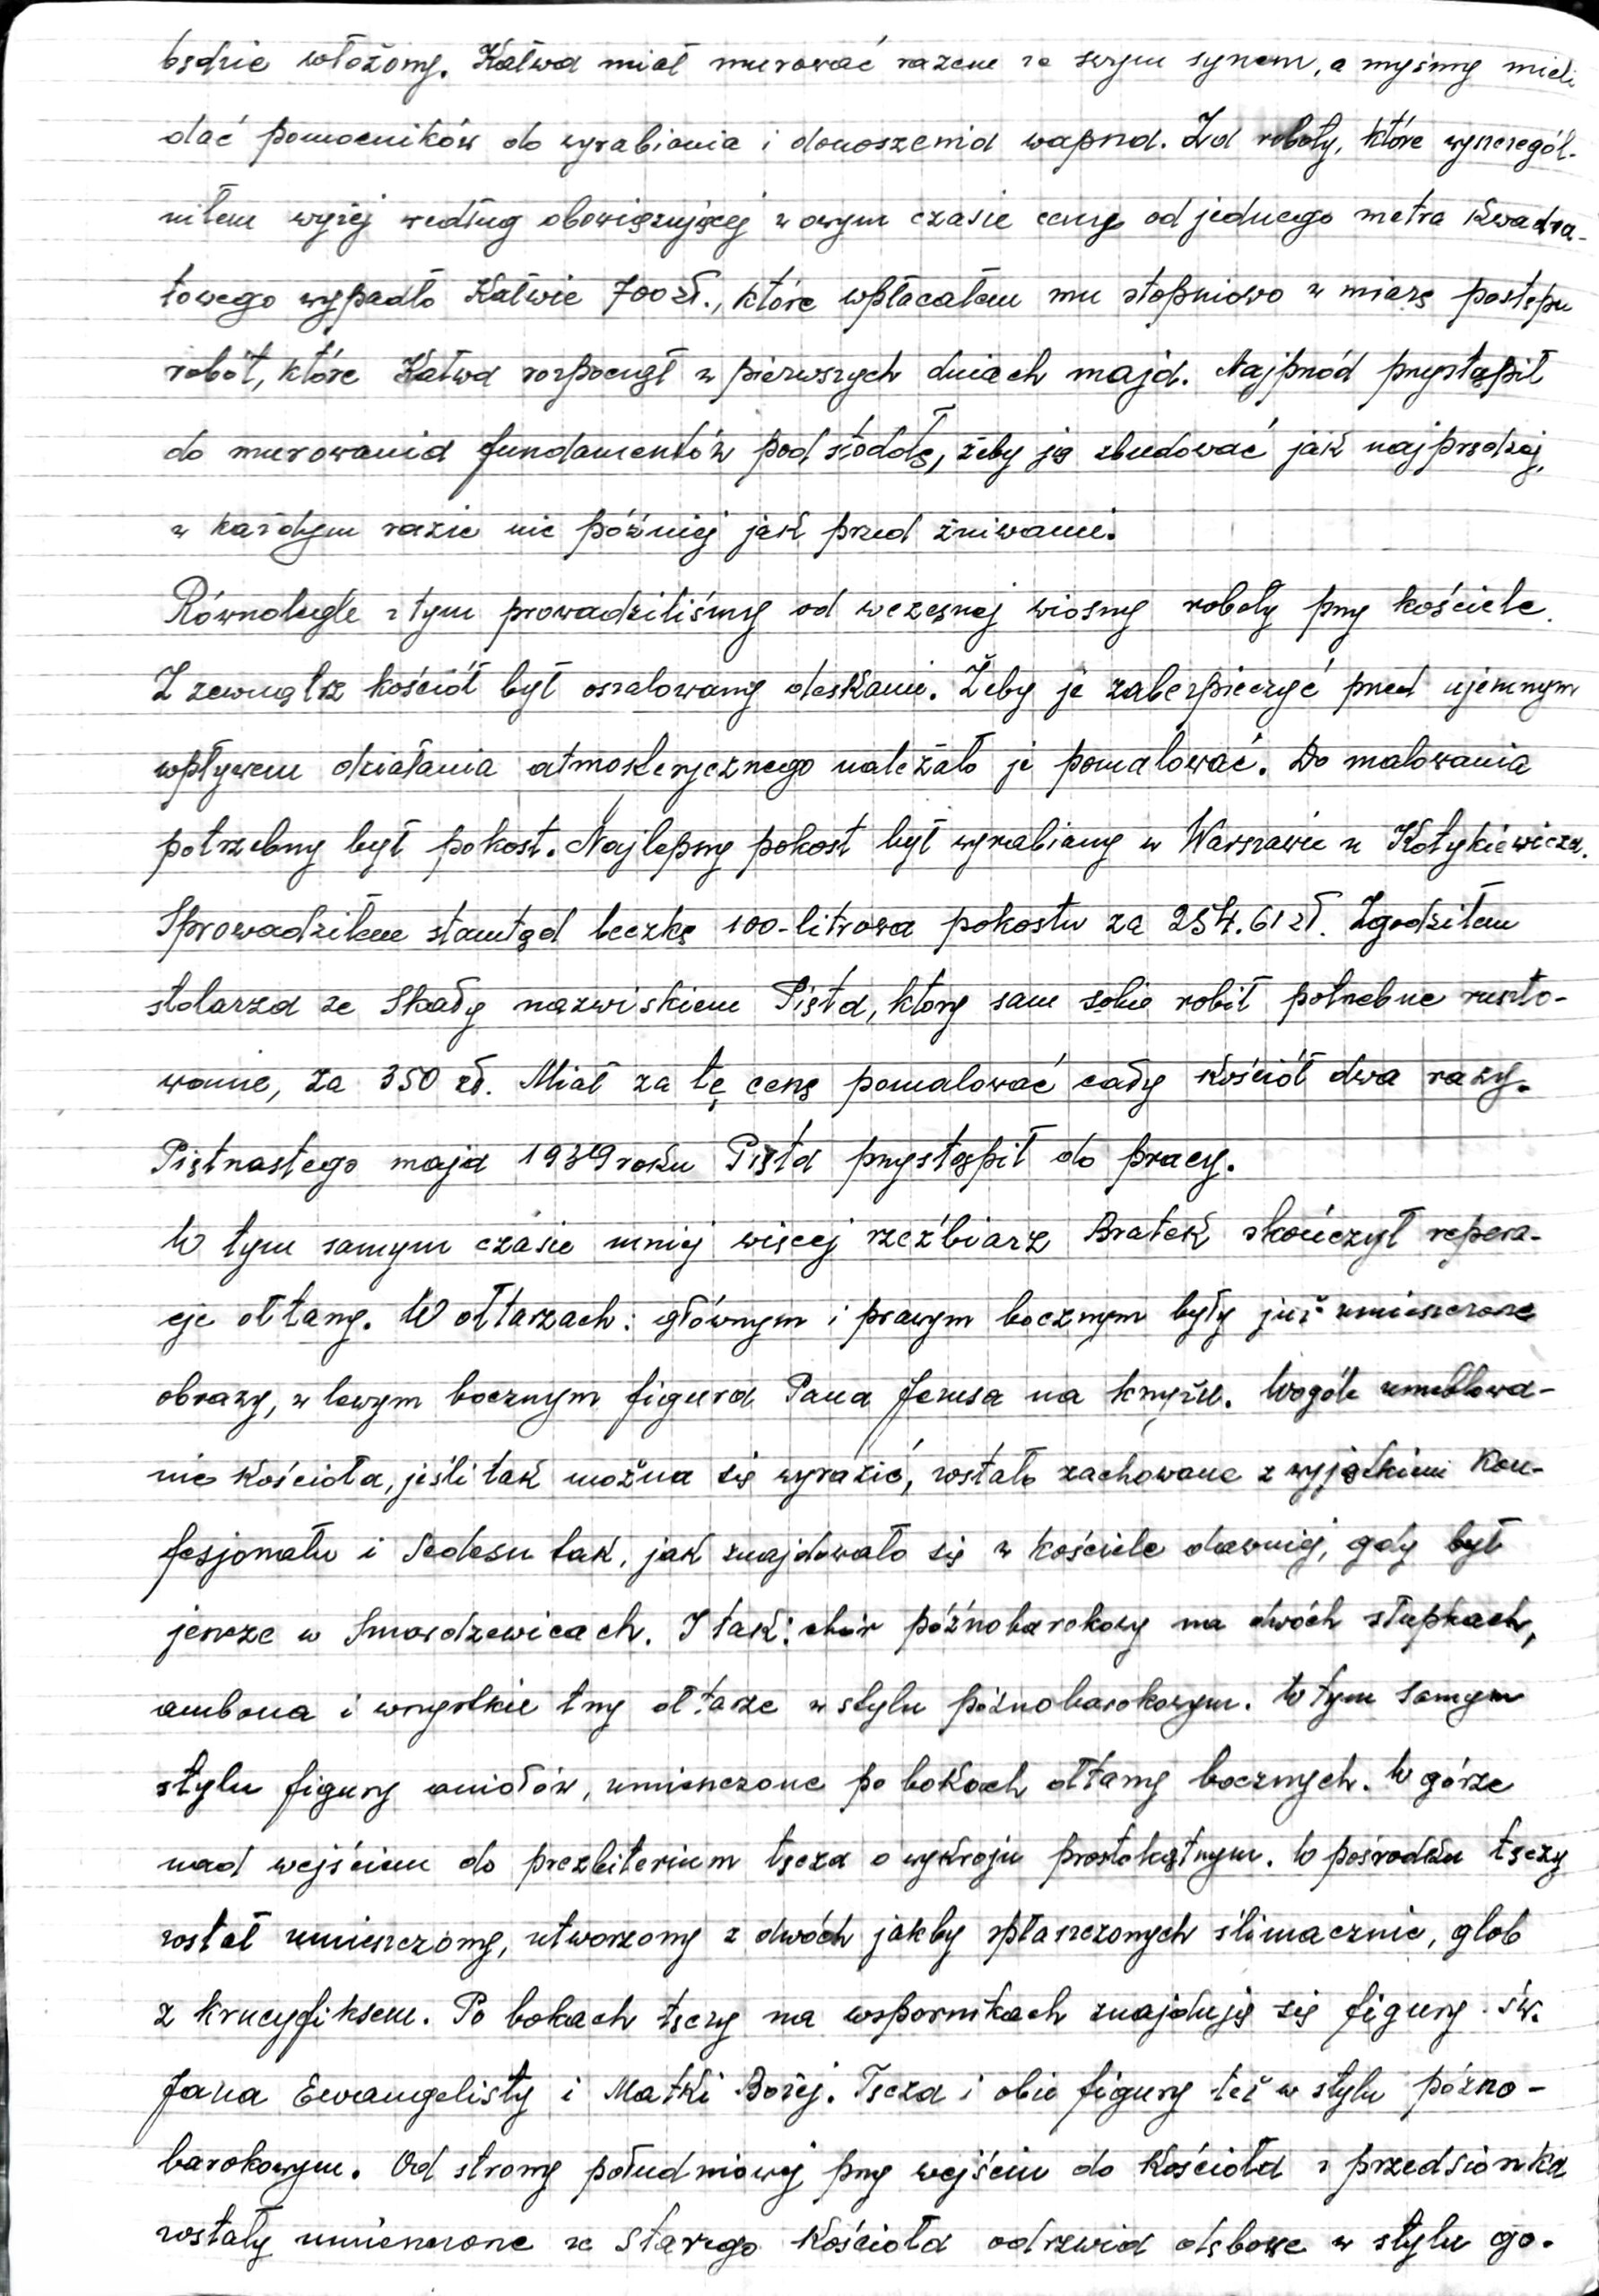 będzie włożony. Kałwa miał murować razem ze swym synem, a myśmy mieli
dać pomocników do wyrabiania i donoszenia wapna. Za roboty, które wyszczegól-
niłem wyżej według obowiązującej w owym czasie ceny od jednego metra kwadra-
towego wypadło Kałwie 700 zł., które wpłacałem mu stopniowo w miarę postępu
robót, które Kałwa rozpoczął w pierwszych dniach maja. Najprzód przystąpił
do murowania fundamentów pod stodołę, żeby ją zbudować jak najprędzej,
w każdym razie nie później jak przed żniwami.
Równolegle z tym prowadziliśmy od wczesnej wiosny roboty przy kościele.
Z zewnątrz kościół był oszalowany deskami. Żeby je zabezpieczyć przed ujemnym
wpływem działania atmosferycznego należało je pomalować. Do malowania
potrzebny był pokost. Najlepszy pokost był wyrabiany w Warszawie u Kotykiewicza.
Sprowadziłem stamtąd beczkę 100-litrową pokostu za 254.61 zł. Zgodziłem
stolarza ze Skały nazwiskiem Pięta, który sam sobie robił potrzebne ruszto-
wanie, za 350 zł. Miał za tę cenę pomalować cały kościół dwa razy.
Piętnastego maja 1949 roku Pięta przystąpił do pracy.
W tym samym czasie mniej więcej rzeźbiarz Bratek skończył repera-
cje ołtarzy. W ołtarzach: głównym i prawym bocznym były już umieszczone
obrazy, w lewym bocznym figura Pana Jezusa na krzyżu. Wogóle umeblowa-
nie kościoła, jeśli tak można się wyrazić, zostało zachowane z wyjątkiem kon-
fesjonału i Sedesu tak, jak znajdowało się w kościele dawniej, gdy był
jeszcze w Smardzewicach. I tak: chór późnobarokowy na dwóch słupkach,
ambona i wszystkie trzy ołtarze w stylu późnobarokowym. W tym samym
stylu figury aniołów, umieszczone po bokach ołtarzy bocznych. W górze
nad wejściem do prezbiterium tęcza o wykroju prostokątnym. W pośrodku tęczy
został umieszczony, utworzony z dwóch jakby spłaszczonych ślimacznic, glob
z krucyfiksem. Po bokach tęczy na wspornikach znajdują się figury św.
Jana Ewangelisty i Matki Bożej. Tęcza i obie figury też w stylu późno-
barokowym. Od strony południowej przy wejściu do kościoła z przedsionka
zostały umieszczone ze starego kościoła odrzwia dębowe w stylu go-